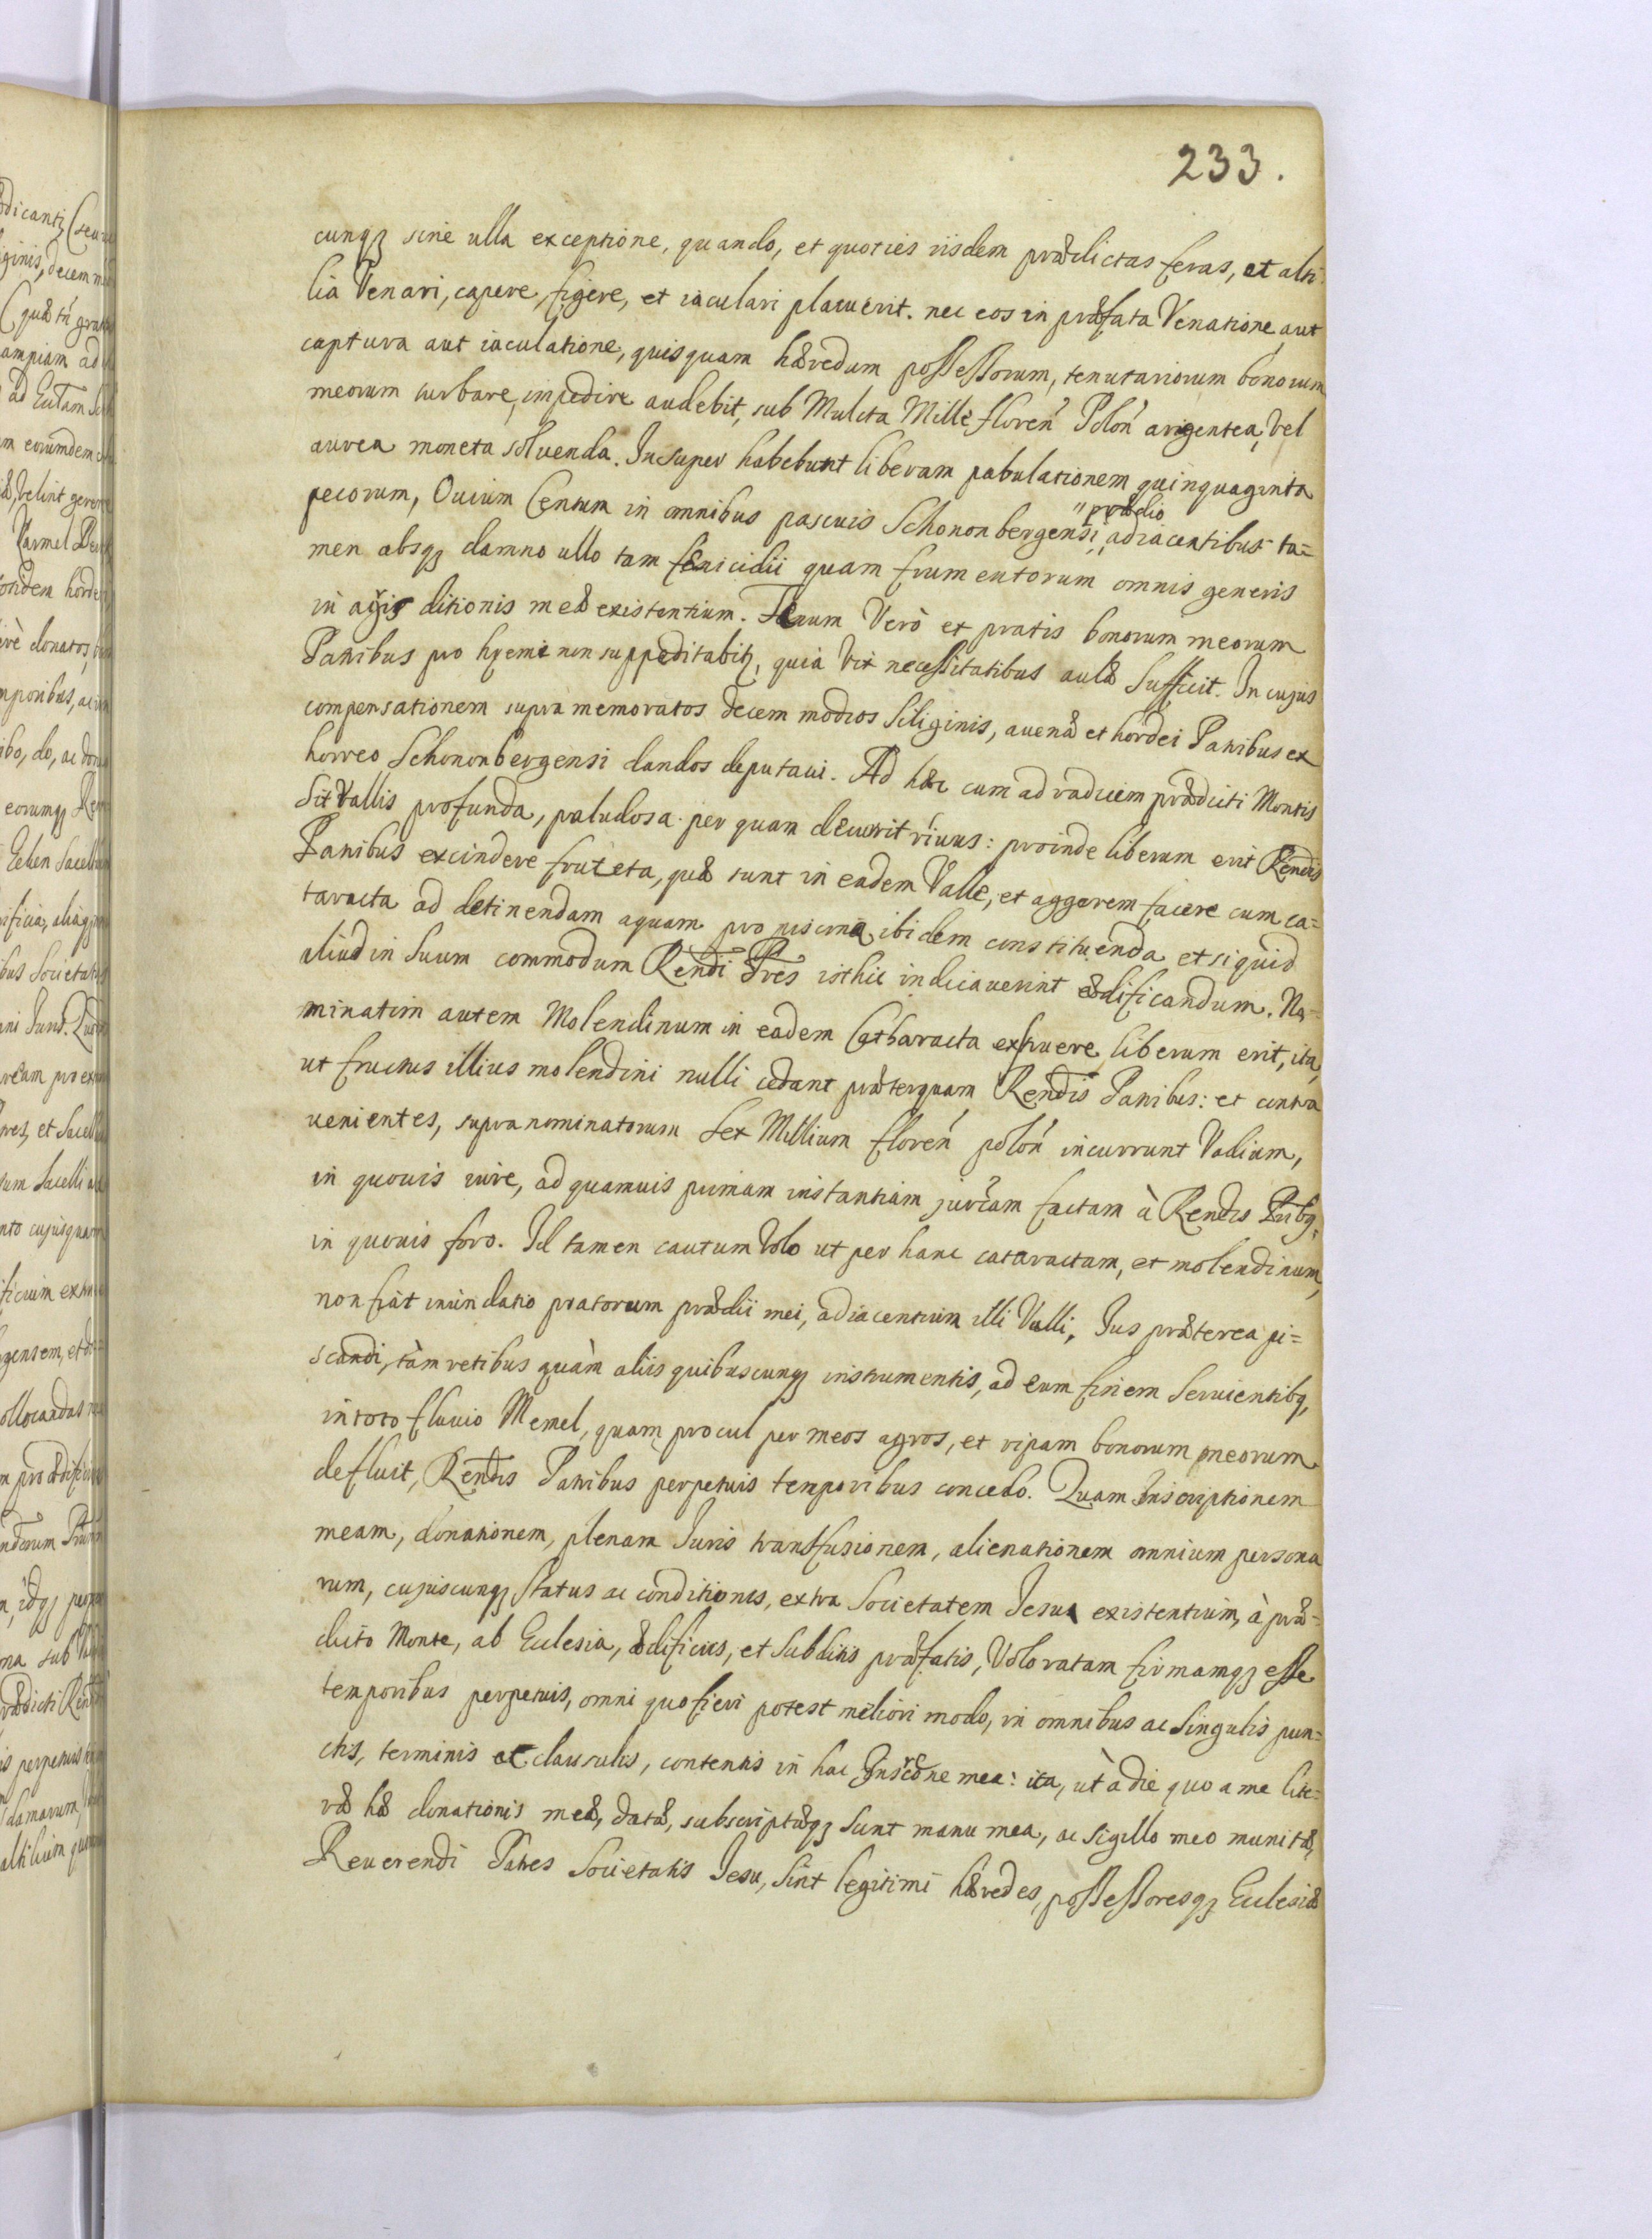 233.
cunqȝ sine ulla exceptione, quando, et quoties iisdem prædictas feras, et alti-
lia Venari, capere, figere, et iaculari placuerit. nec eos in præfata Venatione, aut
captura aut iaculatione, quisquam hæredum possessorum, tenutariorum bonorum
meorum turbare, impedire audebit, sub Mulcta Mille floreń Poloń argentea, Vel
aurea moneta soluenda. Insuper habebunt liberam pabulationem quinquaginta
pecorum, Ouium Centum in omnibus pascuis Schononbergensi "prædio adiacentibus ta=
men absqȝ damno ullo tam fænicidii quam frumentorum omnis generis
in agris ditionis meæ existentium. Fænum Verò et pratis bonorum meorum
Patribus pro hyeme non suppeditabitȝ, quia Vix necessitatibus aulæ Sufficit. In cujus
compensationem supra memoratos decem modios Siliginis, auenæ et hordei Patribus ex
horreo Schononbergensi dandos deputaui. Ad hæc cum ad radicem prædicti Montis
Sit Vallis profunda, paludosa per quam decurrit riuus: proinde liberum erit Rendis
Patribus excindere fruteta, quæ sunt in eadem Valle, et aggerem facere cum ca=
taracta ad detinendam aquam pro piscina ibidem constituenda et si quid
aliud in Suum commodum Rendi Pres isthic indicauerint ædificandum. No=
minatim autem Molendinum in eadem Catharacta exstruere liberum erit, ita,
ut fructus illius molendini nulli cedant præterquam Rendis Patribus: et contra
uenientes, supranominatorum Sex Millium floreń poloń incurrunt Vadium,
in quouis iure, ad quamuis primam instantiam jurcam factam à Rendis Pribȝ,
in quouis foro. Id tamen cautum Volo ut per hanc cataractam, et molendinum,
non fiat inundatio pratorum prædii mei, adiacentium illi Valli, Ius præterea pi=
scandi, tàm retibus quàm aliis quibuscunqȝ instrumentis, ad eum finem Seruientibȝ,
in toto fluuio Memel, quam procul per meos agros, et ripam bonorum meorum
defluit, Rendis Patribus perpetuis temporibus concedo. Quam Inscriptionem
meam, donationem, plenam Iuris transfusionem, alienationem omnium persona
rum, cujuscunqȝ Status ac conditionis, extra Societatem Jesu existentium, à præ=
dicto Monte, ab Ecclesia, ædificiis, et Subditis præfatis, Volo ratam firmamqȝ esse
temporibus perpetuis, omni quo fieri potest meliori modo, in omnibus ac Singulis pun=
ctis, terminis ac clausulis, contentis in hac Inscrone mea: ita, ùt à die quo a me lite=
ræ hæ donationis meæ, datæ, subscriptæqȝ Sunt manu mea, ac Sigillo meo munitæ,
Reuerendi Patres Societatis Jesu, Sint legitimi hæredes, possessoresqȝ Ecclesiæ